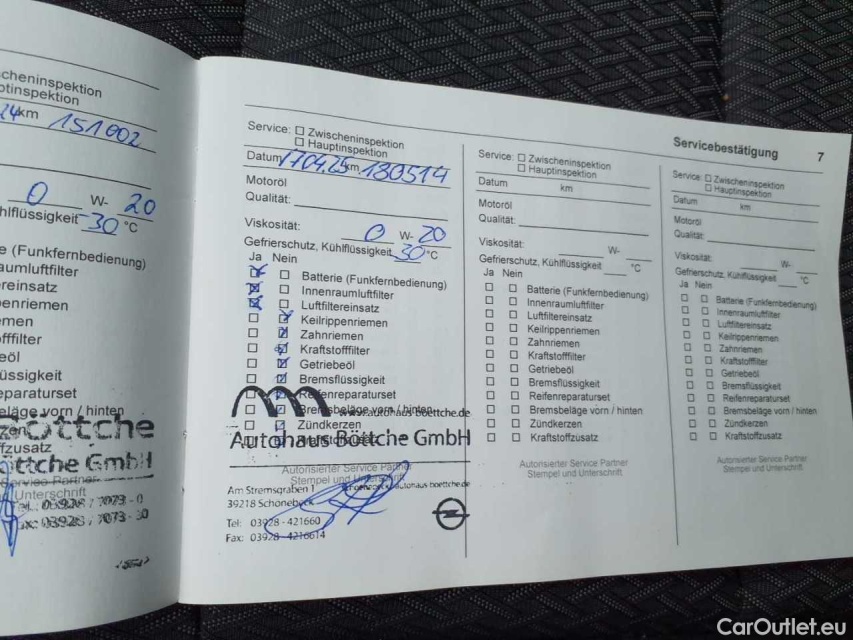 scheninspektion
ptinspektion
24 km 151002
0 W- 20
hlflüssigkeit -30 °C
e (Funkfernbedienung)
aumluftfilter
reinsatz
enriemen
emen
offfilter
eöl
üssigkeit
eparaturset
eläge vorn / hinten
zen
ffzusatz
öttche
öttche GmbH
Service Partner
Unterschrift
03928 / 7073 - 0
03928 / 7073 - 30
Servicebestätigung 7
Service: Zwischeninspektion
Hauptinspektion
Datum 17.04.25 km 180514
Motoröl
Qualität:
Viskosität: 0 W- 20
Gefrierschutz, Kühlflüssigkeit 30 °C
Ja Nein
Batterie (Funkfernbedienung)
Innenraumluftfilter
Luftfiltereinsatz
Keilrippenriemen
Zahnriemen
Kraftstofffilter
Getriebeöl
Bremsflüssigkeit
Reifenreparaturset
Bremsbeläge vorn / hinten
www.autohaus-boettche.de
Zündkerzen
Kraftstoffzusatz
Autohaus Böttche GmbH
Autorisierter Service Partner
Stempel und Unterschrift
Am Stremsgraben 1
39218 Schönebeck
autohaus-boettche.de
Tel: 03928 - 421660
Fax: 03928 - 4216614
Service: Zwischeninspektion
Hauptinspektion
Datum km
Motoröl
Qualität:
Viskosität: W-
Gefrierschutz, Kühlflüssigkeit °C
Ja Nein
Batterie (Funkfernbedienung)
Innenraumluftfilter
Luftfiltereinsatz
Keilrippenriemen
Zahnriemen
Kraftstofffilter
Getriebeöl
Bremsflüssigkeit
Reifenreparaturset
Bremsbeläge vorn / hinten
Zündkerzen
Kraftstoffzusatz
Autorisierter Service Partner
Stempel und Unterschrift
Service: Zwischeninspektion
Hauptinspektion
Datum km
Motoröl
Qualität:
Viskosität: W-
Gefrierschutz, Kühlflüssigkeit °C
Ja Nein
Batterie (Funkfernbedienung)
Innenraumluftfilter
Luftfiltereinsatz
Keilrippenriemen
Zahnriemen
Kraftstofffilter
Getriebeöl
Bremsflüssigkeit
Reifenreparaturset
Bremsbeläge vorn / hinten
Zündkerzen
Kraftstoffzusatz
Autorisierter Service Partner
Stempel und Unterschrift
CarOutlet.eu